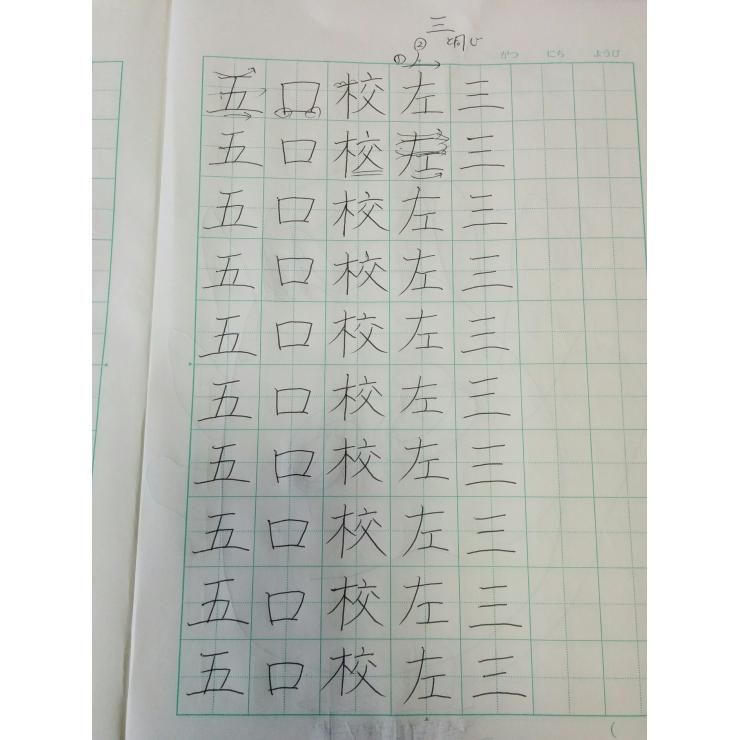 三
と同じ
② 
①
がつ にち ようび
五 口 校 左 三
五 口 校 左 三
五 口 校 左 三
五 口 校 左 三
五 口 校 左 三
五 口 校 左 三
五 口 校 左 三
五 口 校 左 三
五 口 校 左 三
五 口 校 左 三
(